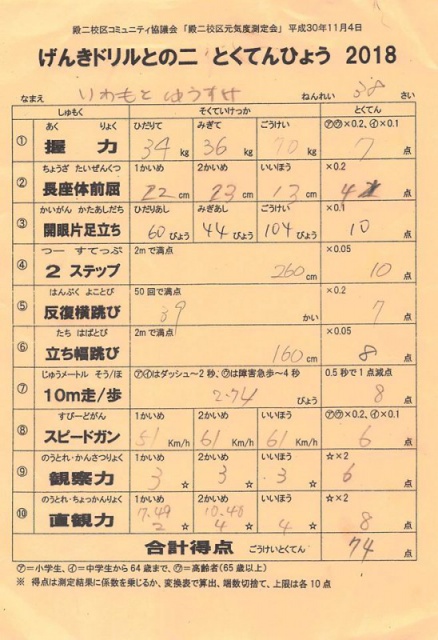 殿二校区コミュニティ協議会 「殿二校区元気度測定会」 平成30年11月4日
げんきドリルとの二 とくてんひょう 2018
なまえ いわもと ゆうすけ ねんれい 38 さい
しゅもく そくていけっか とくてん
① あく りょく ひだりて みぎて ごうけい ㋐㋒×0.2、㋑×0.1
握 力 34 kg 36 kg 70 kg 7 点
② ちょうざ たいぜんくつ 1かいめ 2かいめ いいほう ×0.2
長座体前屈 22 cm 23 cm cm 4 点
③ かいがん かたあしだち ひだりあし みぎあし ごうけい ×0.1
開眼片足立ち 60 びょう 44 びょう 104 びょう 10 点
④ つー すてっぷ 2mで満点 ×0.05
2 ステップ 260 cm 10 点
⑤ はんぷく よことび 50回で満点 ×0.2
反復横跳び 39 かい 7 点
⑥ たち はばとび 2mで満点 ×0.05
立ち幅跳び 160 cm 8 点
⑦ じゅうメートル そう/ほ ㋐㋑はダッシュ~2秒、㋒は障害急歩~4秒 0.5秒で1点減点
10m走/歩 2.74 びょう 8 点
⑧ すぴーどがん 1かいめ 2かいめ いいほう ㋐㋒×0.2、㋑×0.1
スピードガン 51 Km/h 61 Km/h 61 Km/h 6 点
⑨ のうとれ・かんさつりょく 1かいめ 2かいめ いいほう ☆×2
観察力 3 ☆ 3 ☆ 3 ☆ 6 点
⑩ のうとれ・ちょっかんりょく 1かいめ 2かいめ いいほう ☆×2
直観力 17.49 2 ☆ 10.48 4 ☆ 4 ☆ 8 点
合計得点 ごうけいとくてん 74 点
㋐=小学生、㋑=中学生から64歳まで、㋒=高齢者(65歳以上)
※ 得点は測定結果に係数を乗じるか、変換表で算出、端数切捨て、上限は各10点